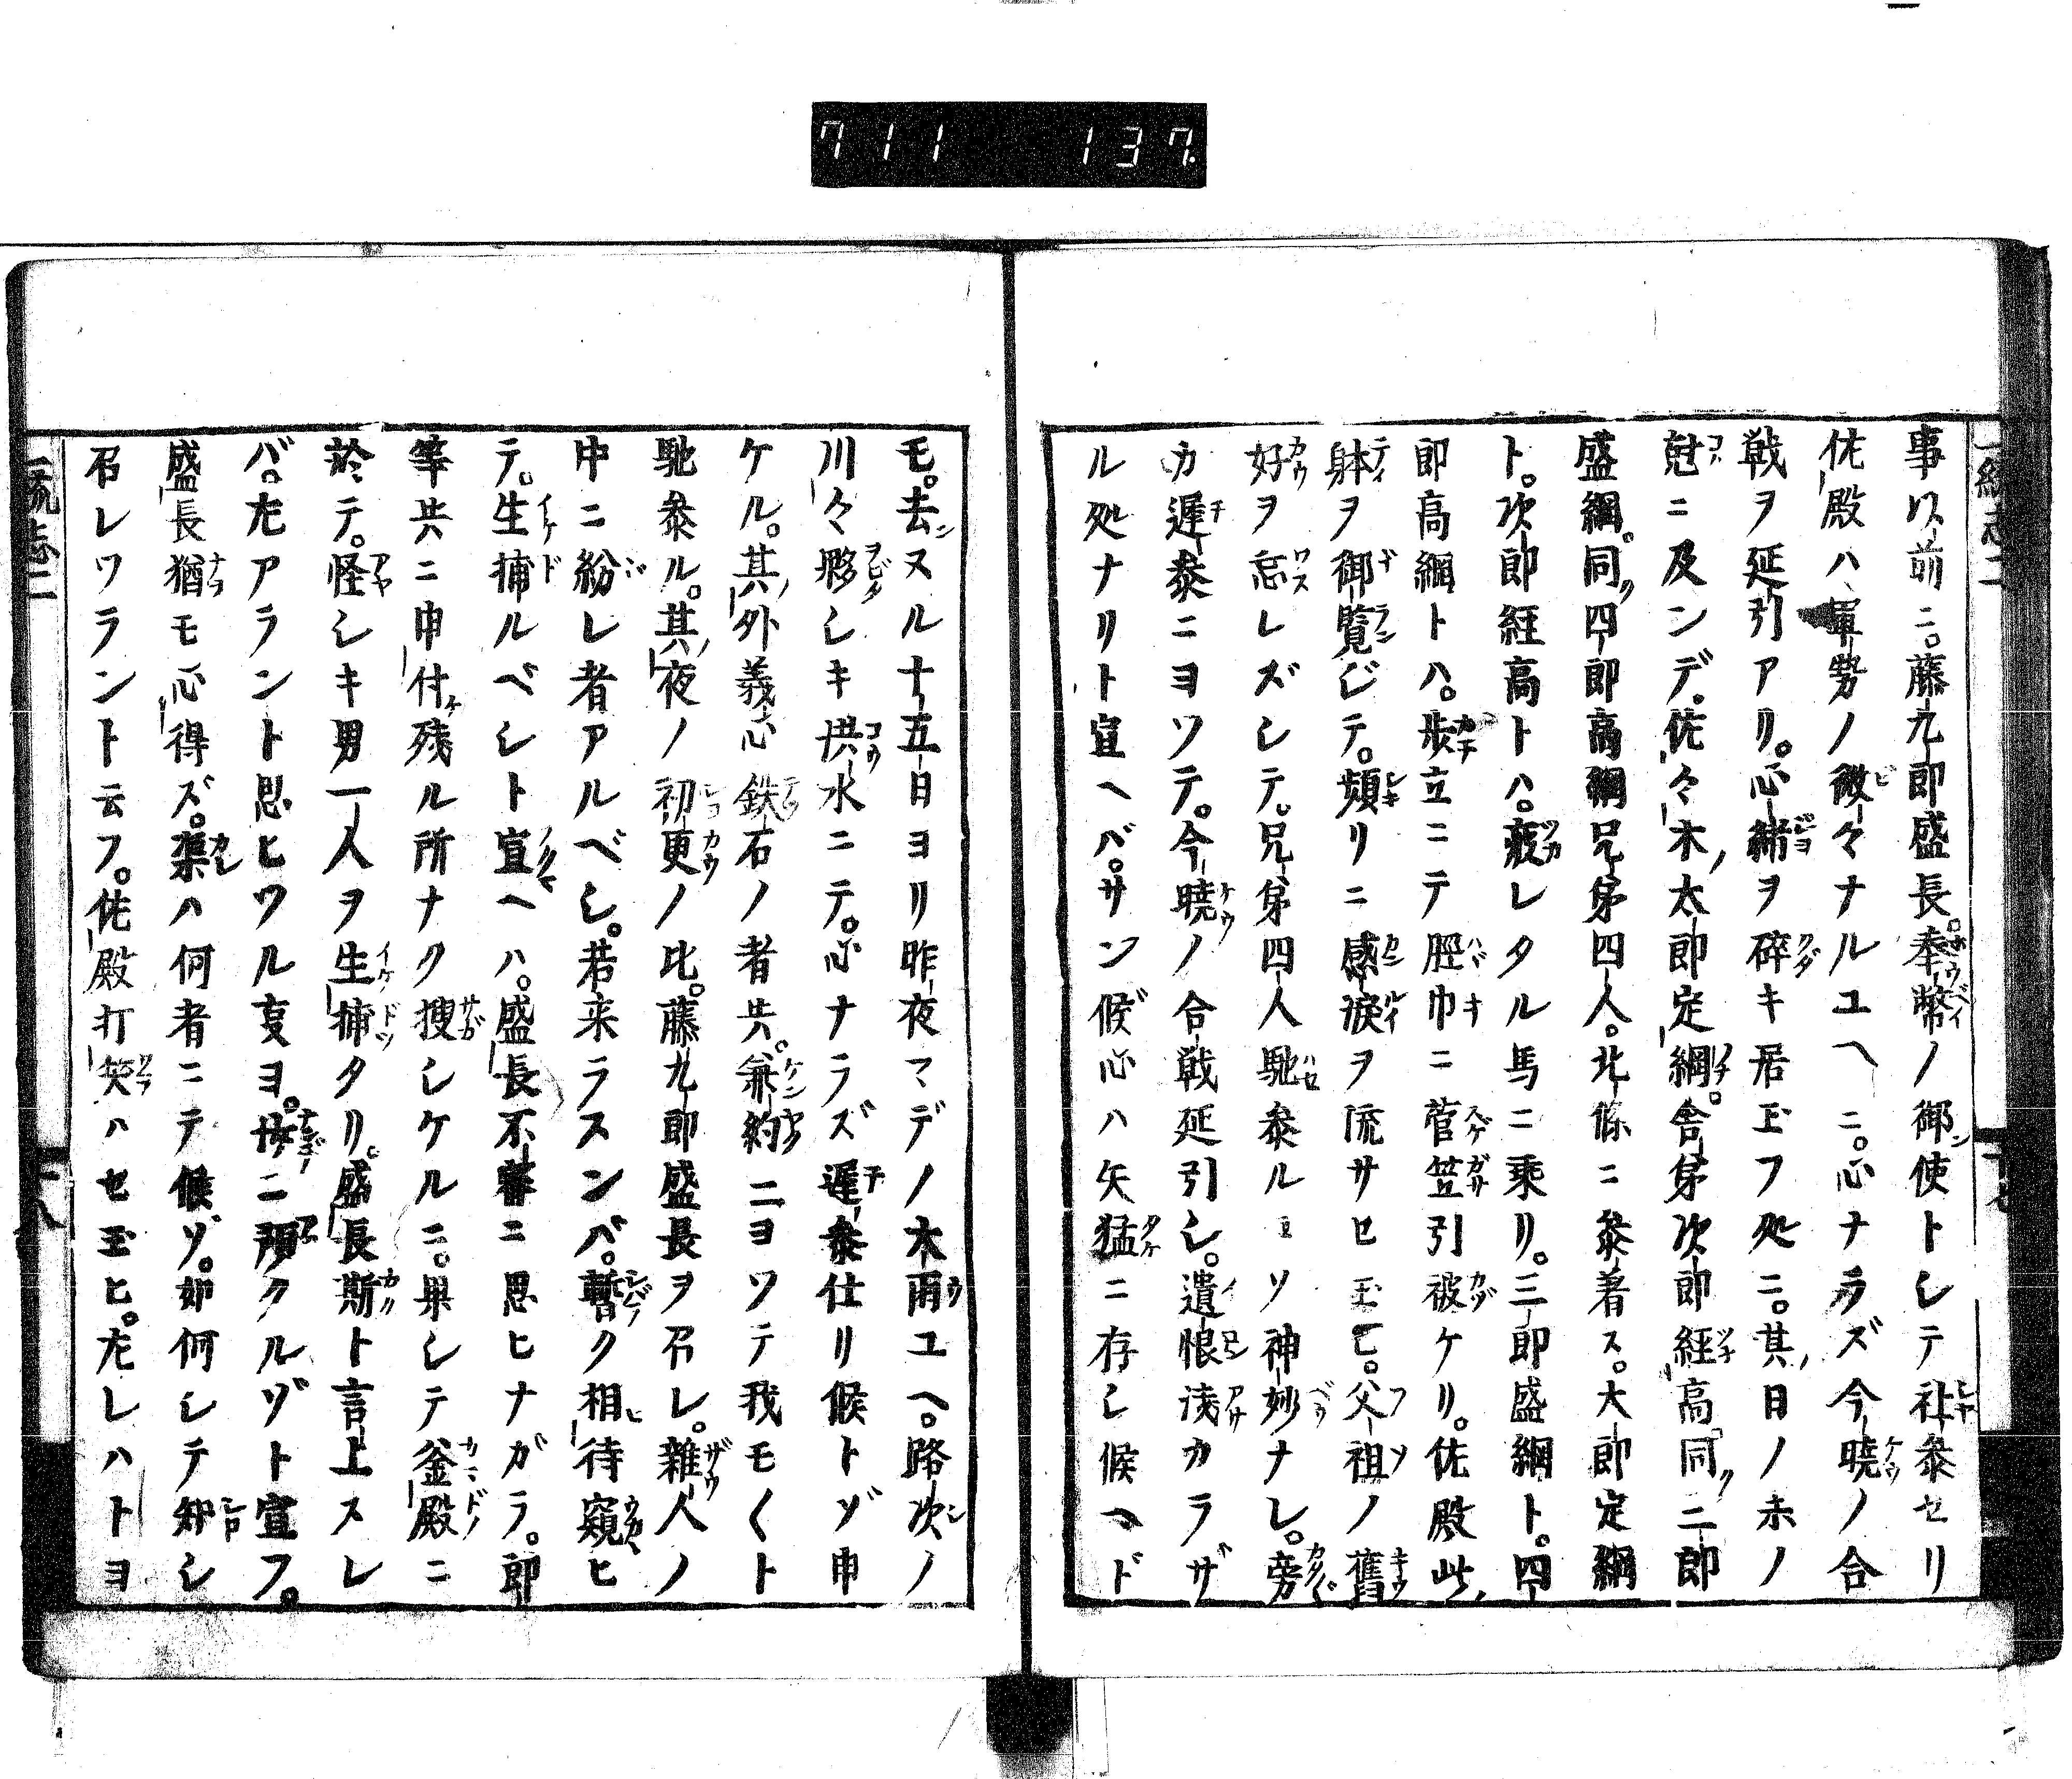 711 137.
事以前ニ。藤九郎盛長。奉幣ノ御使トシテ社参セリ
佐殿ハ軍勢ノ微々ナルユヘニ。心ナラズ今暁ノ合
戦ヲ延引アリ。心緒ヲ砕キ居玉フ処ニ。其日ノ未ノ
尅ニ及ンデ。佐々木太郎定綱。舎弟次郎経高。同二郎
盛綱。同四郎高綱兄弟四人。北條ニ参着ス。大郎定綱
ト。次郎経高トハ。疲レタル馬ニ乗リ。三郎盛綱ト。四
郎高綱トハ。歩立ニテ脛巾ニ菅笠引被ケリ。佐殿此
躰ヲ御覧ジテ。頻リニ感涙ヲ流サセ玉ヒ。父祖ノ舊
好ヲ忘レズシテ。兄弟四人馳参ルコソ神妙ナレ。旁
カ遅参ニヨツテ。今暁ノ合戦延引シ。遺恨浅カラザ
ル処ナリト宣ヘバ。サン候心ハ矢猛ニ存シ候ヘド
モ。去ヌル十五日ヨリ昨夜マデノ大雨ユヘ。路次ノ
川々夥シキ洪水ニテ。心ナラズ遅参仕リ候トゾ申
ケル。其外義心鉄石ノ者共。兼約ニヨツテ我モ〱ト
馳参ル。其夜ノ初更ノ比。藤九郎盛長ヲ召レ。雑人ノ
中ニ紛レ者アルベシ。若来ラスンバ。暫ク相待窺ヒ
テ。生捕ルベシト宣ヘハ。盛長不審ニ思ヒナガラ。郎
等共ニ申付残ル所ナク捜シケルニ。果シテ釜殿ニ
於テ。怪シキ男一人ヲ生捕タリ。盛長斯ト言上スレ
バ。左アラント思ヒツル亥ヨ。母ニ預クルゾト宣フ。
盛長猶モ心得ズ。渠ハ何者ニテ候ゾ。如何シテ知シ
召レツラントエフ。佐殿打笑ハセ玉ヒ。左レハトヨ